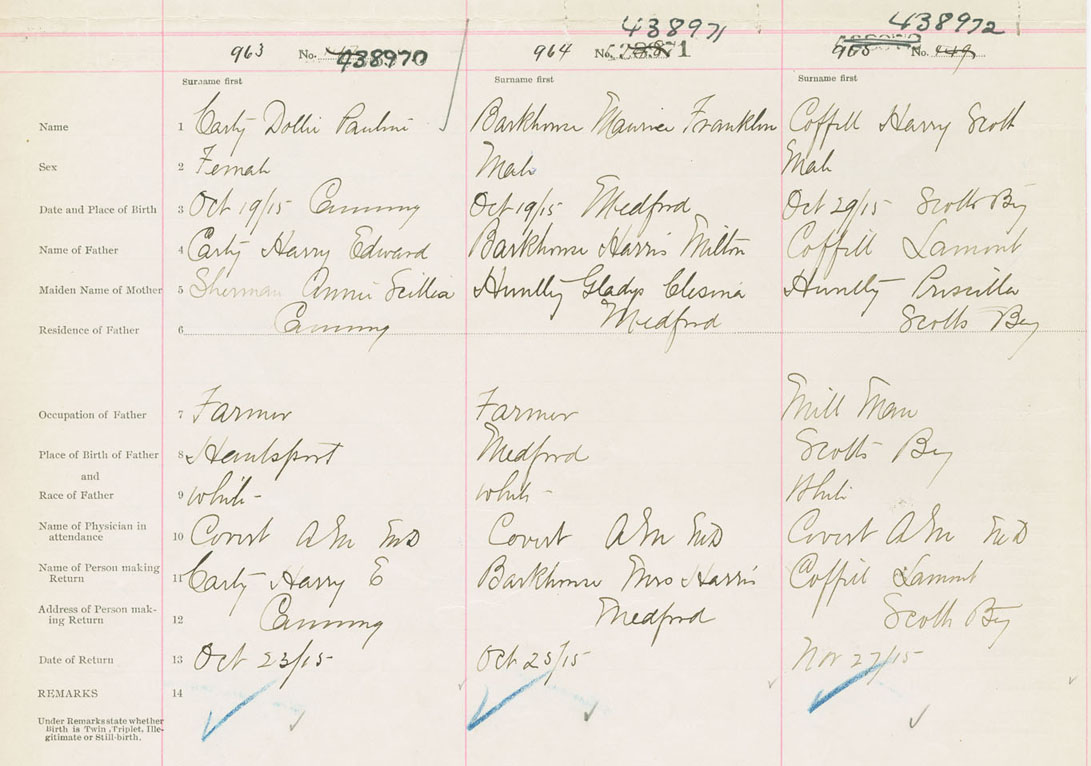 438971 438972
963 No. 438970 964 No. 965 No. 449
Surname first Surname first Surname first
Name 1 Carty Dollie Pauline Barkhouse Maurice Franklin Coffill Harry Scott
Sex 2 Female Male Male
Date and Place of Birth 3 Oct 19/15 Canning Oct 19/15 Medford Oct 29/15 Scotts Bay
Name of Father 4 Carty Harry Edward Barkhouse Harris Milton Coffill Lamont
Maiden Name of Mother 5 Sherman Annie Huntly Gladys Huntly Priscilla
Residence of Father 6 Canning Medford Scotts Bay
Occupation of Father 7 Farmer Farmer Mill Man
Place of Birth of Father 8 Hantsport Medford Scotts Bay
and
Race of Father 9 white - white - White
Name of Physician in
attendance 10 Covert A M MD Covert A M MD Covert A M MD
Name of Person making
Return 11 Carty Harry E Barkhouse Mrs Harris Coffill Lamont
Address of Person mak-
ing Return 12 Canning Medford Scotts Bay
Date of Return 13 Oct 23/15 Oct 25/15 Nov 27/15
REMARKS 14
Under Remarks state whether
Birth is Twin, Triplet, Ille-
gitimate or Still-birth.